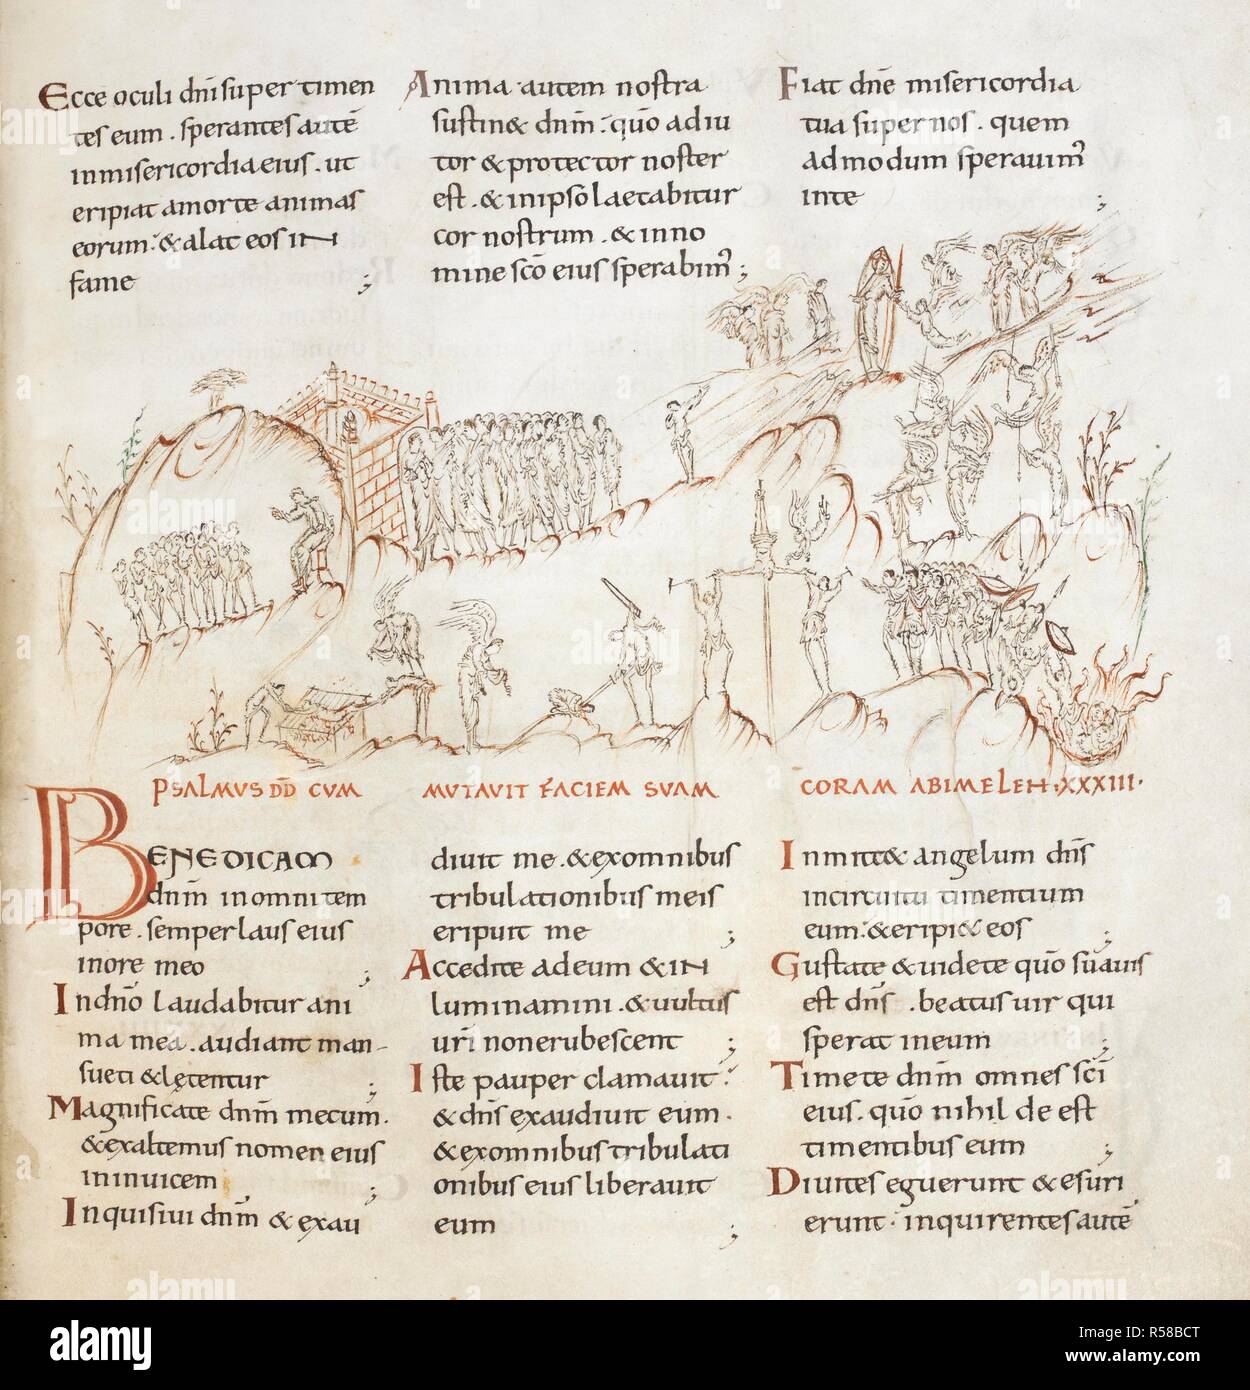 Ecce oculi dñi super timen
tes eum . sperantes autē
in misericordia eius . ut
eripiat a morte animas
eorum : & alat eos IN
fame ;
Anima autem nostra
sustin& dnm̄ : quō adiu
tor & protector noster
est . & in ipso laetabitur
cor nostrum . & in no
mine scō eius sperabim̄ ;
Fiat dn̄e misericordia
tua super nos . quem
admodum speravim̄
in te ;
PSALMUS DD̄ CUM MUTAVIT FACIEM SUAM CORAM ABIMELEH . XXXIII .
BENEDICAM
dnm̄ in omni tem
pore . semper laus eius
in ore meo ;
In dn̄o laudabitur ani
ma mea . audiant man-
sueti & lętentur ;
Magnificate dnm̄ mecum .
& exaltemus nomen eius
in inuicem ;
Inquisiui dnm̄ & exau
diuit me . & ex omnibus
tribulationibus meis
eripuit me ;
Accedite ad eum & IN
luminamini . & uultus
ur̄i non erubescent ;
Iste pauper clamauit :
& dn̄s exaudiuit eum .
& ex omnibus tribulati
onibus eius liberauit
eum ;
Inmitt& angelum dn̄s
in circuitu timentium
eum : & eripi& eos ;
Gustate & uidete quō suauis
est dn̄s . beatus uir qui
sperat in eum ;
Timete dnm̄ omnes scī
eius . quō nihil de est
timentibus eum ;
Diuites eguerunt & esuri
erunt . inquirentes autē
alamy
alamy
Image ID: R58BCT
www.alamy.com